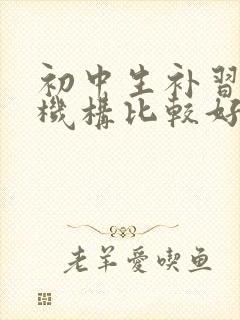 初中生补習
機構比較好
老羊愛喫鱼